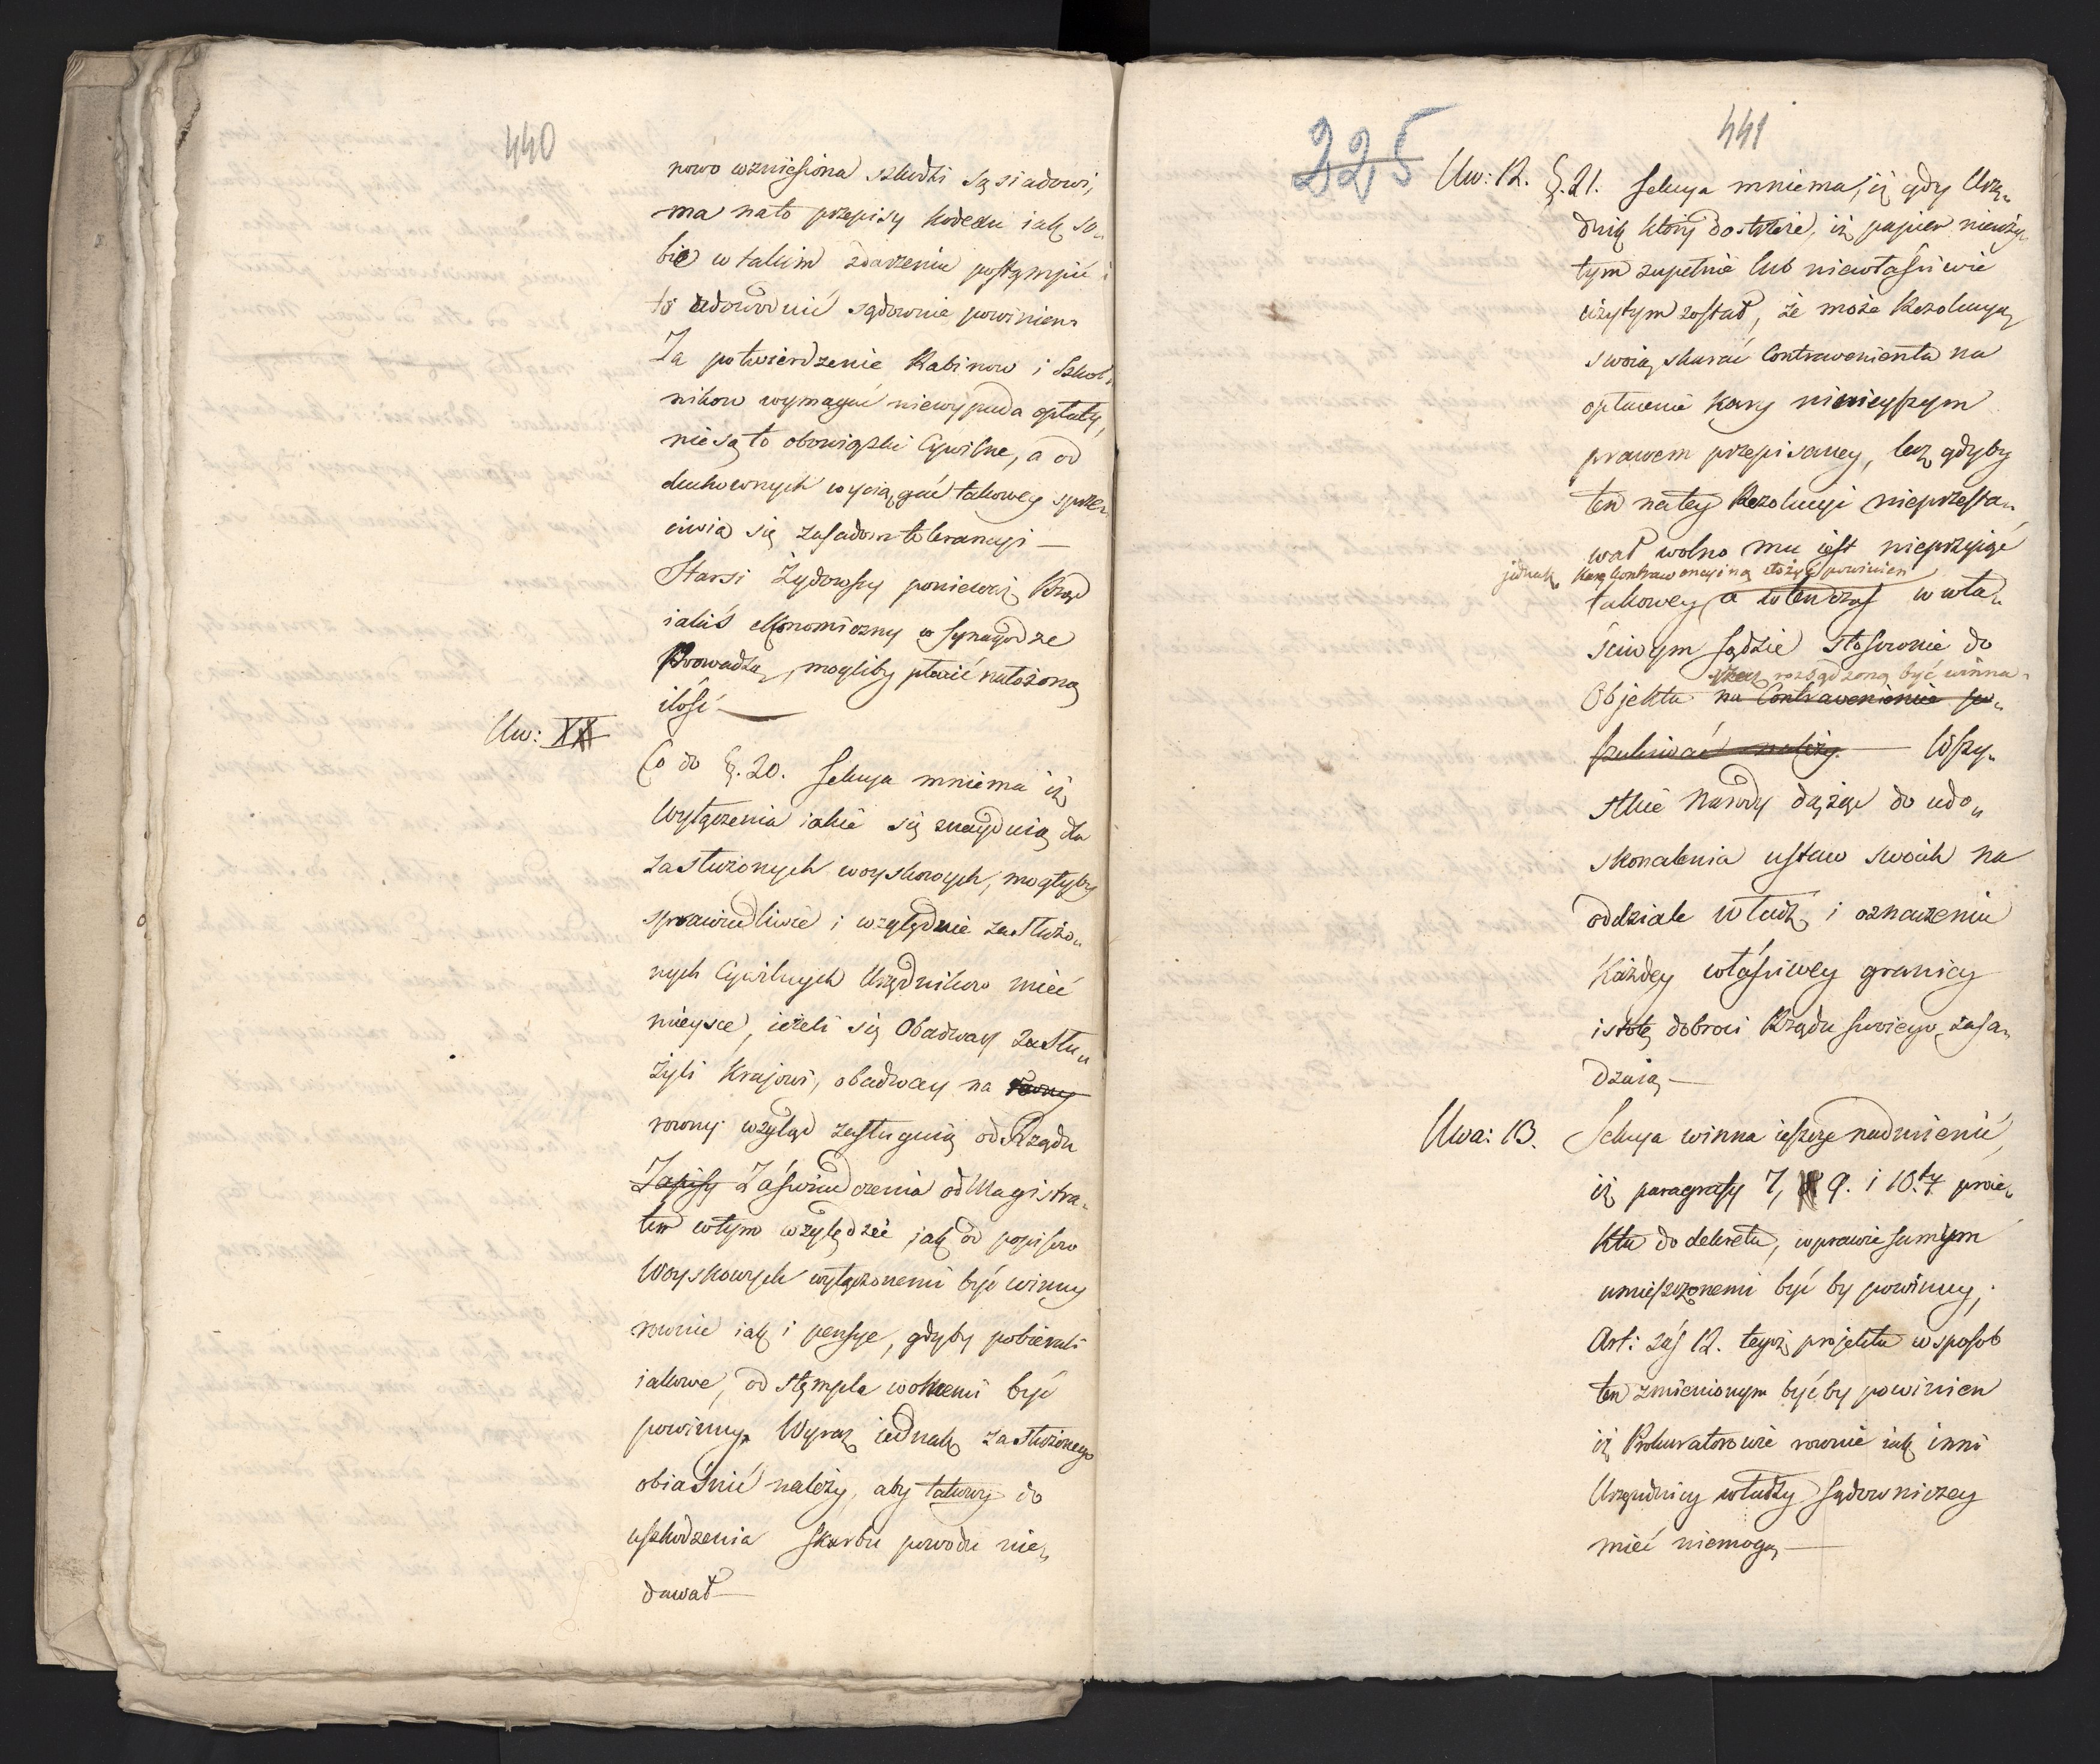 440
nowo wzniesiona szkodzi sąsiadowi,
ma na to przepisy kodexu iak so„
bie w takim zdarzeniu postąmpić i
to udowodnić sądownie powinien.
Za potwierdzenie Rabinow i Szkol„
nikow wymagać niewypada opłaty,
nie są to obowiązki Cywilne, a od
duchownych wyciągać takowey sprze„
ciwia się zasadom tolerancyi —
Starsi Żydowscy ponieważ Rząd
iakiś ekonomiczny w Synagodze
Prowadzą, mogliby płacić nałożoną
ilość. —
Uw: XI
Co do §. 20. Sekcya mniema iż
Wyłączenia iakie się znayduią dla
zasłużonych woyskowych, mogłyby
sprawiedliwie i względnie zasłużo„
nych Cywilnych Urzędnikow mieć
mieysce, ieżeli się Obadway zasłu„
żyli Krajowi, obadway na rowny
rowny wzgląd zasługuią od Rządu
Zapisy Zaświadczenia od Magistra„
tow w tym względzie jak od popisow
Woyskowych wyłączonemi być winny
rownie iak i pensye, gdyby pobierali
iakowe, od stępmpla wolnemi być
powinny. Wyraz iednak zasłużonego
obiaśnić należy, aby takowy do
uszkodzenia Skarbu powodu nie„
dawał —
225
441
Uw: 12. §. 21. Sekcya mniema, iż gdy Urzę„
dnik który dostrzeże, iż papier nieuży„
tym zupełnie lub niewłaściwie
użytym został, że może Rezolucyą
swoią skarać Contravenienta na
opłacenie kary ninieyszym
prawem przepisaney, lecz gdyby
ten na tey Rezolucyi nieprzesta„
wał wolno mu iest nieprzyiąć
jednak karę Contrawencyiną złożyć powinien
takowey, a wtenczas w wła„
ściwym sądzie stosownie do
rzecz rozsądzoną być winna.
Objektu na Contravenienie po„
szukiwać należy. — Wszy„
stkie Narody dążąc do udo„
skonalenia ustaw swoich na
oddziale władz i oznaczeniu
Każdey właściwey granicy
istotę dobroci Rządu swoiego zasa„
dzaią —
Uwa: 13. Sekcya winna ieszcze nadmienić,
iż paragrafy 7, 9. i 10.ty proie„
ktu do dekretu, w prawie samym
umieszczonemi być by powinny;
Art: zaś 12. tegoż projektu w sposob
ten zmienionym być by powinien
iż Prokuratorowie rownie iak inni
Urzędnicy władzy Sądowniczey
mieć niemogą —